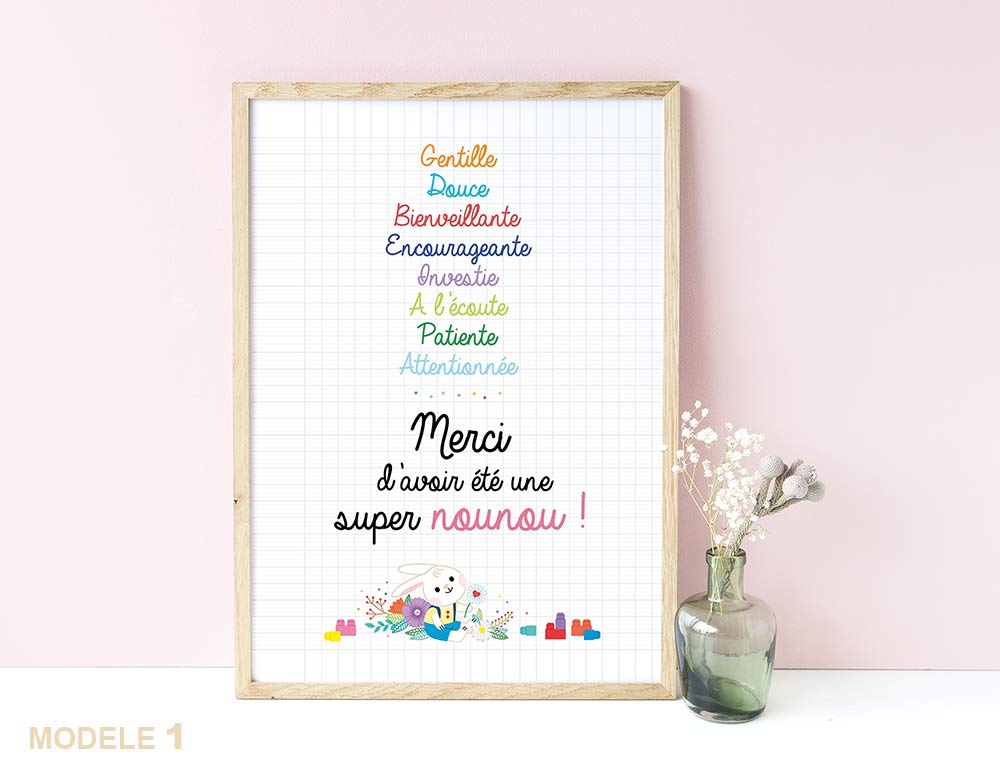 Gentille
Douce
Bienveillante
Encourageante
Investie
A l'écoute
Patiente
Attentionnée
Merci
d'avoir été une
super nounou !
MODELE 1